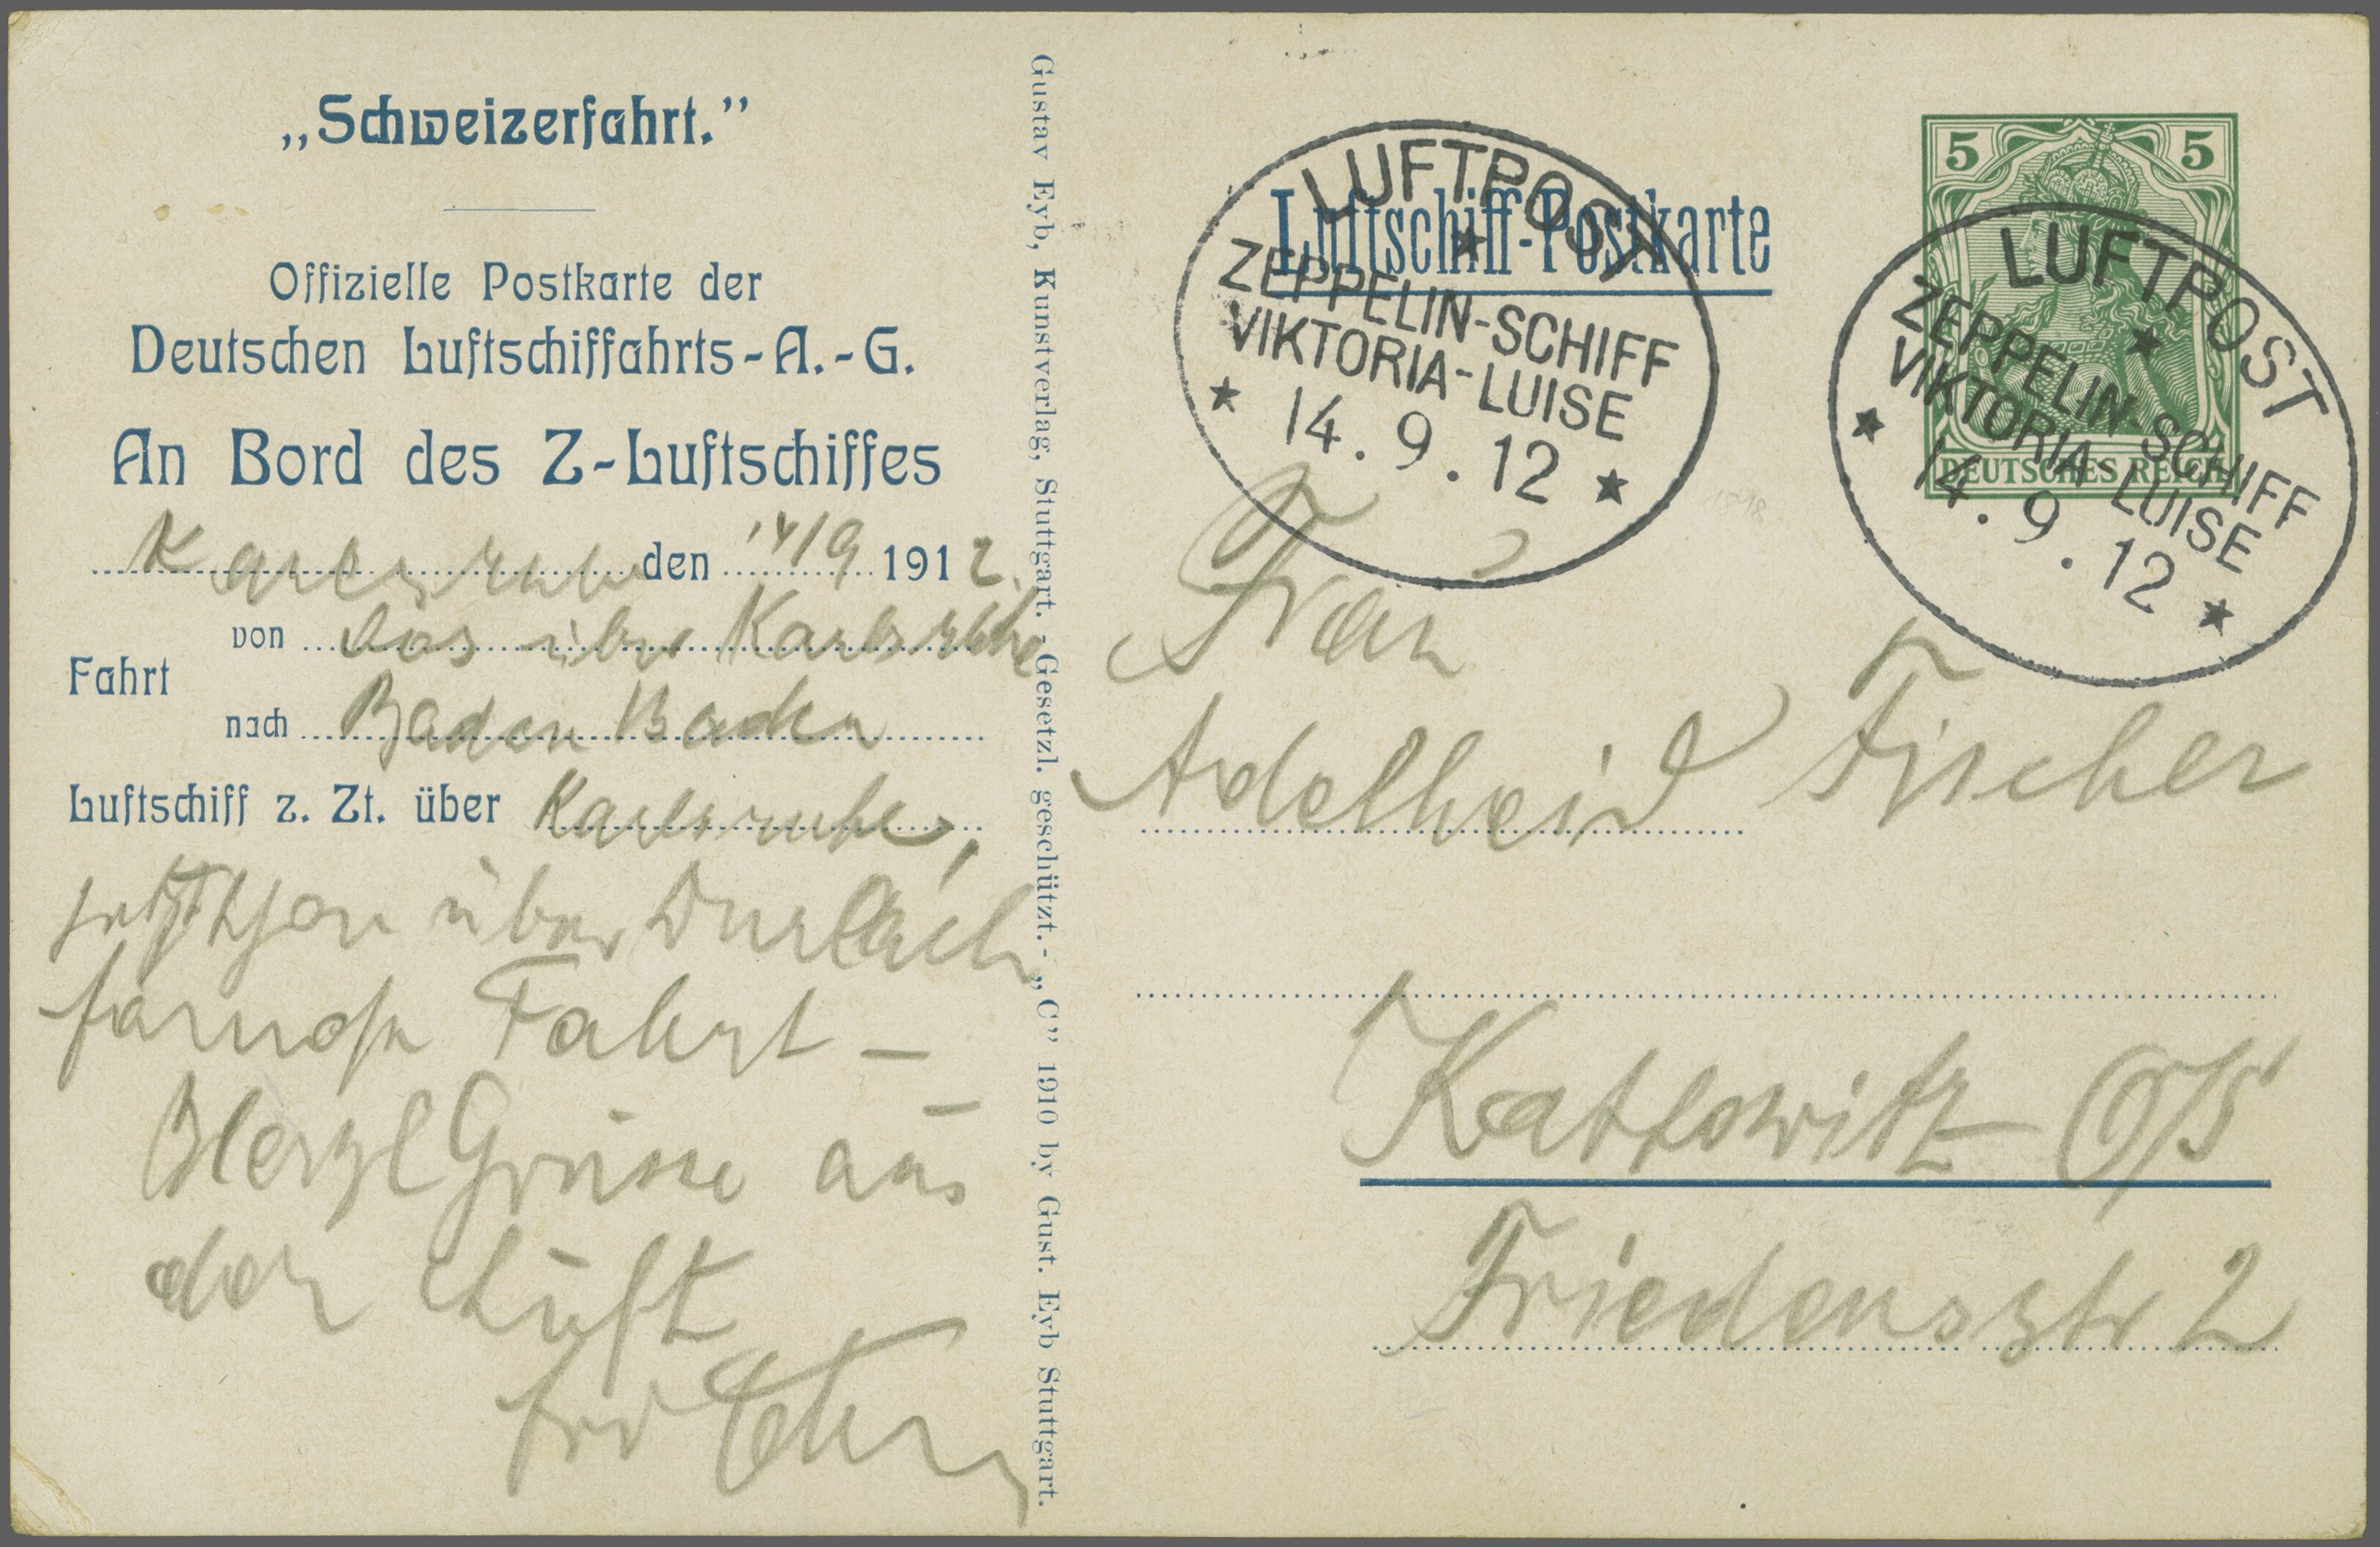 „Schweizerfahrt.”
Offizielle Postkarte der
Deutschen Luftschiffahrts-A.-G.
An Bord des Z-Luftschiffes
Karlsruhe den 14/9 1912.
Fahrt
von Oos über Karlsruhe
nach Baden Baden
Luftschiff z. Zt. über Karlsruhe,
jetzt schon über Durlach
famose Fahrt –
Herzl Grüsse aus
der Luft
Gustav Eyb, Kunstverlag, Stuttgart. - Gesetzl. geschützt. - „C” 1910 by Gust. Eyb Stuttgart.
Luftschiff-Postkarte
LUFTPOST
ZEPPELIN-SCHIFF
VIKTORIA-LUISE
14.9.12
5 5
DEUTSCHES REICH
LUFTPOST
ZEPPELIN-SCHIFF
VIKTORIA-LUISE
14.9.12
Frau
Adelheid Fischer
Kattowitz O/S
Friedensstr 2